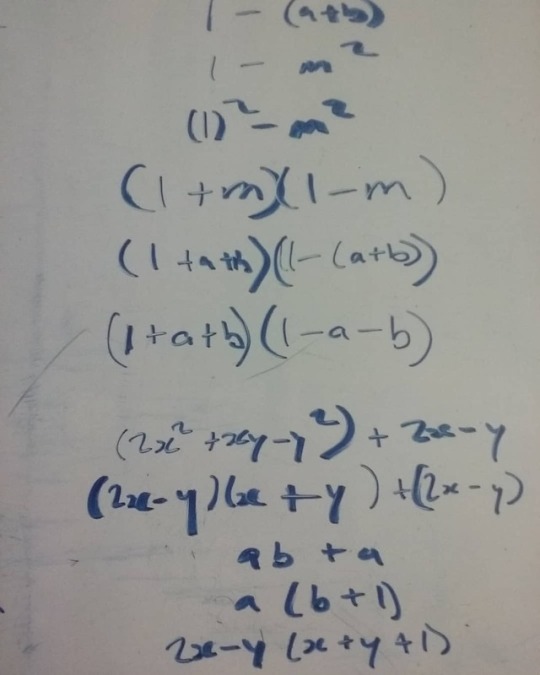 1 - (a+b)
1 - m²
(1)² - m²
(1+m)(1-m)
(1+a+b)(1-(a+b))
(1+a+b)(1-a-b)
(2x²+xy-y²) + 2x-y
(2x-y)(x+y) + (2x-y)
ab + a
a (b+1)
2x-y (x+y+1)